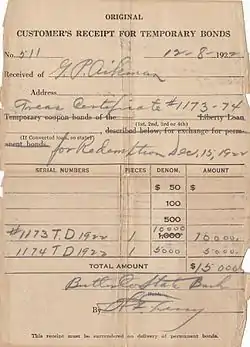 ORIGINAL
CUSTOMER'S RECEIPT FOR TEMPORARY BONDS
No. 511 12-8-1922
Received of G.P. Aikman
Address
Treas Certificate #1173-74
Temporary coupon bonds of the Liberty Loan
(1st, 2nd, 3rd or 4th)
(If Converted loan, so state), described below, for exchange for perm-
anent bonds. for Redemption Dec, 15, 1922
SERIAL NUMBERS PIECES DENOM. AMOUNT
$ 50 $
100
500
#1173 T.D 1922 1 10000 1,000 10000
1174 T D 1922 1 5000 5,000 5000
TOTAL AMOUNT $15000
Butler Co State Bank
By
This receipt must be surrendered on delivery of permanent bonds.